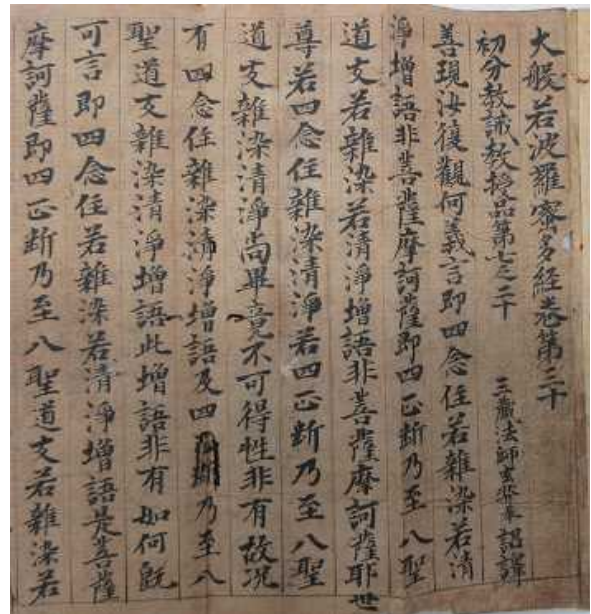 大般若波羅蜜多經卷第三十
初分教誡教授品第七之二十 三藏法師玄奘奉 詔譯
善現汝復觀何義言即四念住若雜染若清
淨增語非菩薩摩訶薩即四正斷乃至八聖
道支若雜染若清淨增語非菩薩摩訶薩耶世
尊若四念住雜染清淨若四正斷乃至八聖
道支雜染清淨尚畢竟不可得性非有故況
有四念住雜染清淨增語及四乃至八
聖道支雜染清淨增語此增語非有如何既
可言即四念住若雜染若清淨增語是菩薩
摩訶薩即四正斷乃至八聖道支若雜染若